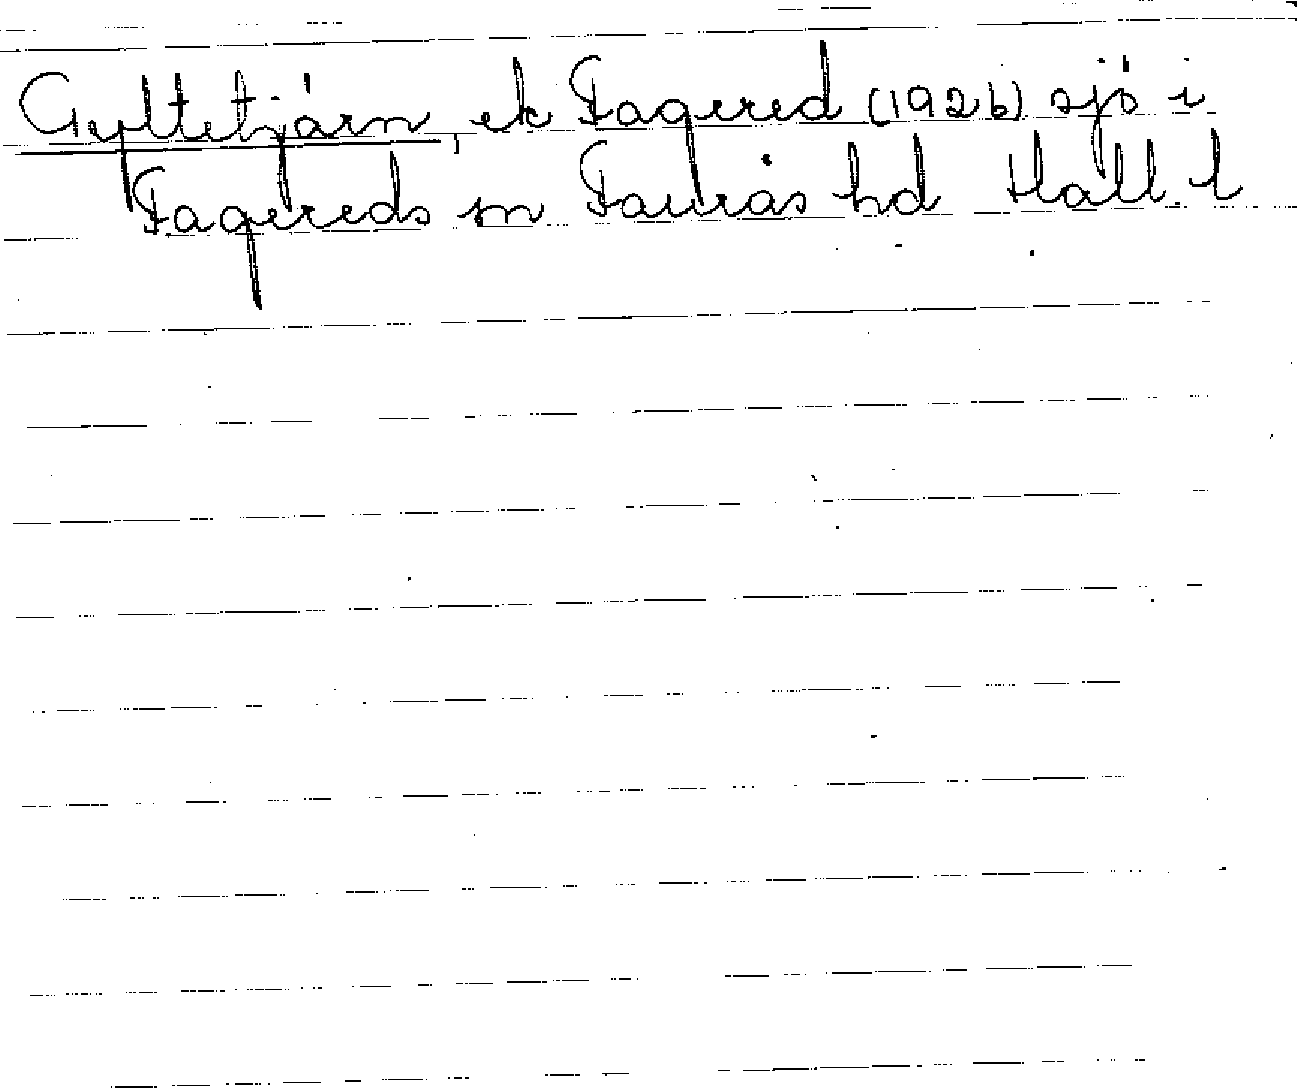 Gyltetjärn, ek Fagered (1926) sjö i
Fagereds sn Faurås hd Hall. l